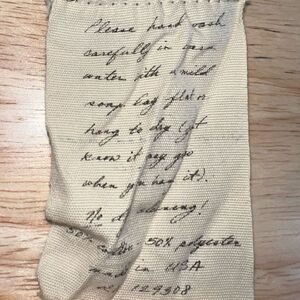 Please hand wash
carefully in warm
water ith a mild
soap. Lay flat or
hang to dry (
know it may
when you
No d
50% 50% olyester
made in USA
129308